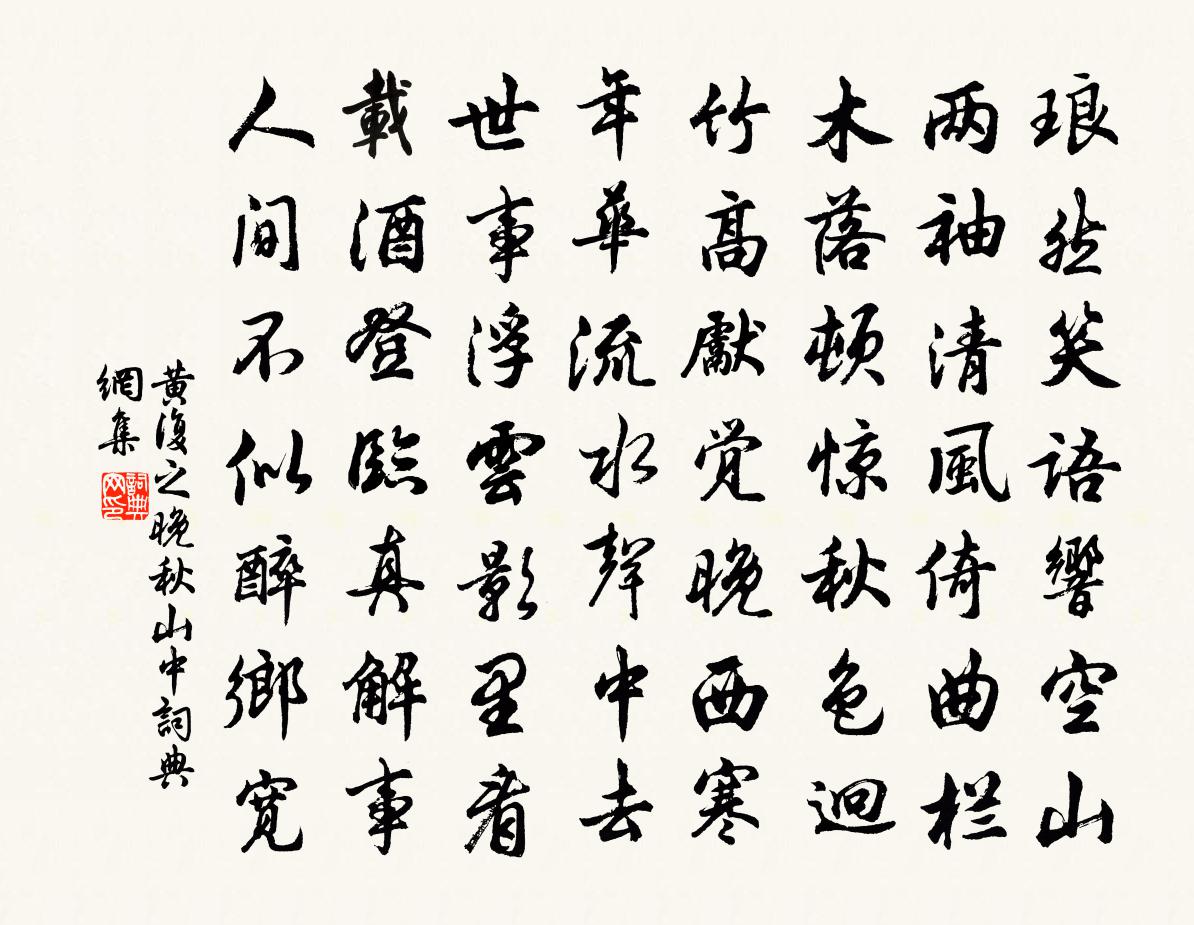 琅然笑语響空山
两袖清風倚曲栏
木落顿惊秋色迥
竹高獻觉晚西寒
年華流水聲中去
世事浮雲影里看
載酒登臨真解事
人间不似醉鄉寬
黄復之晚秋山中詞典
網集
詞典网印